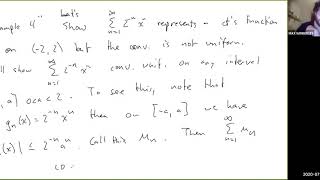 ample 4 Let's show ∑_{n=1}^{∞} 2^{-n} x^n represents cts function
on (-2, 2) but the conv. is not uniform.
show ∑_{n=1}^{∞} 2^{-n} x^n conv. unif. on any interval
, a] 0<a<2. To see this, note that
g_n(x) = 2^{-n} x^n then on [-a, a] we have
(x)| ≤ 2^{-n} a^n. Call this M_n. Then ∑_{n=1}^{∞} M_n
2020-07